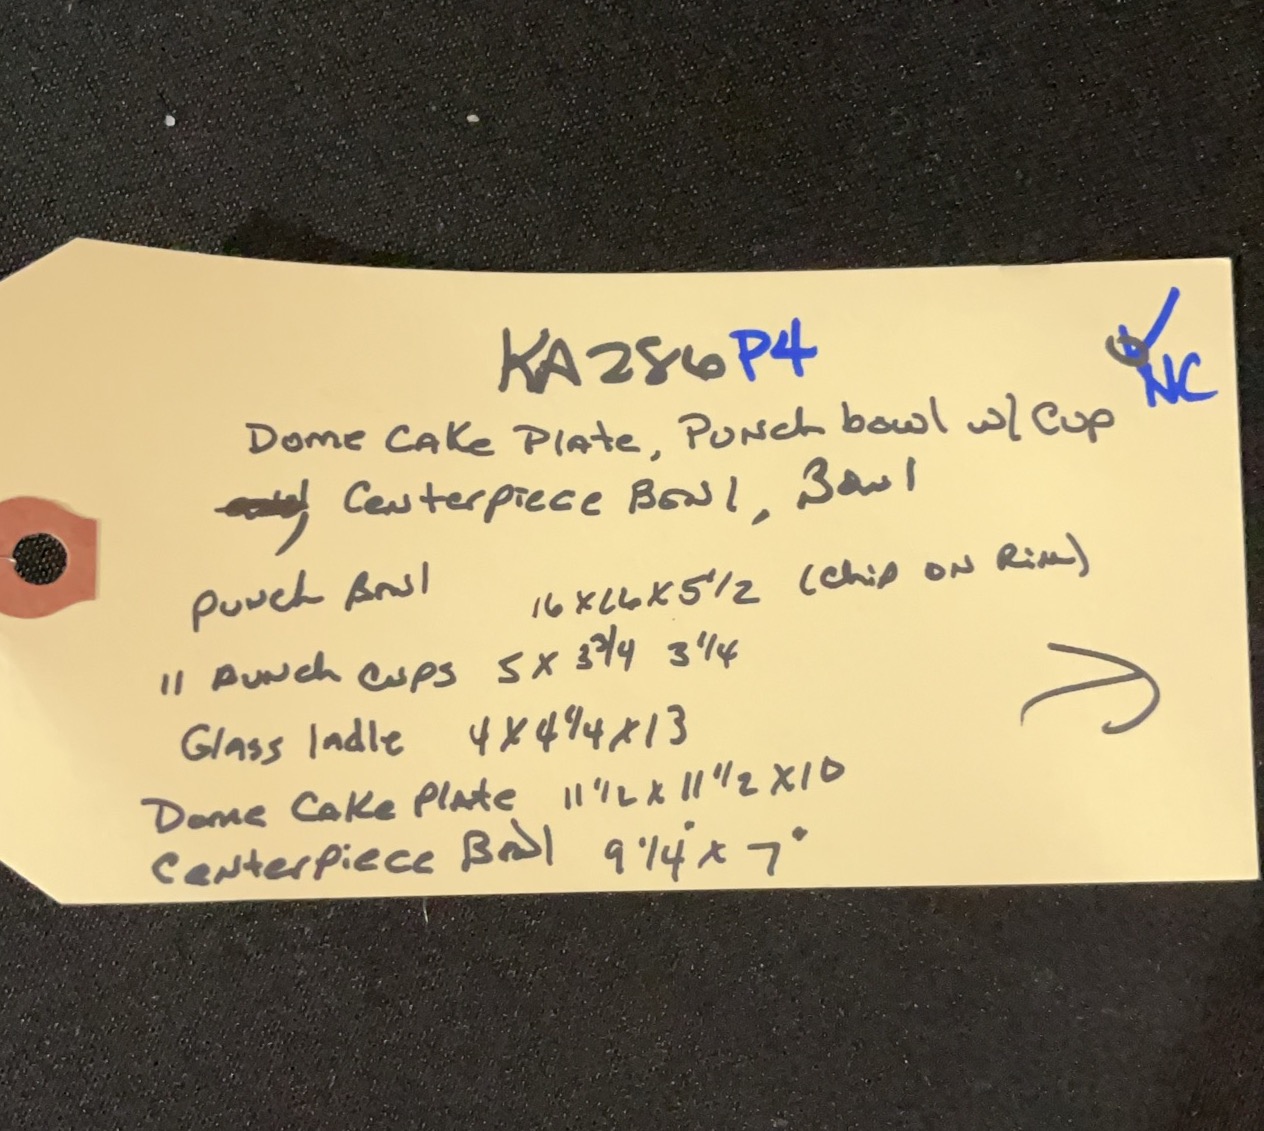 KA286 P4
NC
Dome Cake Plate, Punch bowl w/ Cup
, Centerpiece Bowl, Bowl
Punch Bowl 16 x 16 x 5 1/2 (chip on Rim)
11 Punch Cups 5 x 3 3/4 3 1/4
Glass ladle 4 x 4 1/4 x 13
Dome Cake Plate 11 1/2 x 11 1/2 x 10
Centerpiece Bowl 9 1/4" x 7"